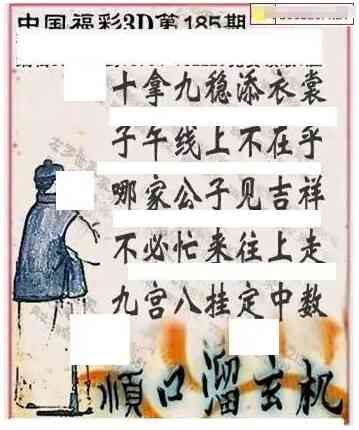 中国福彩3D第185期
十拿九稳添衣裳
子午线上不在乎
哪家公子见吉祥
不必忙来往上走
九宫八挂定中数
順口溜玄机